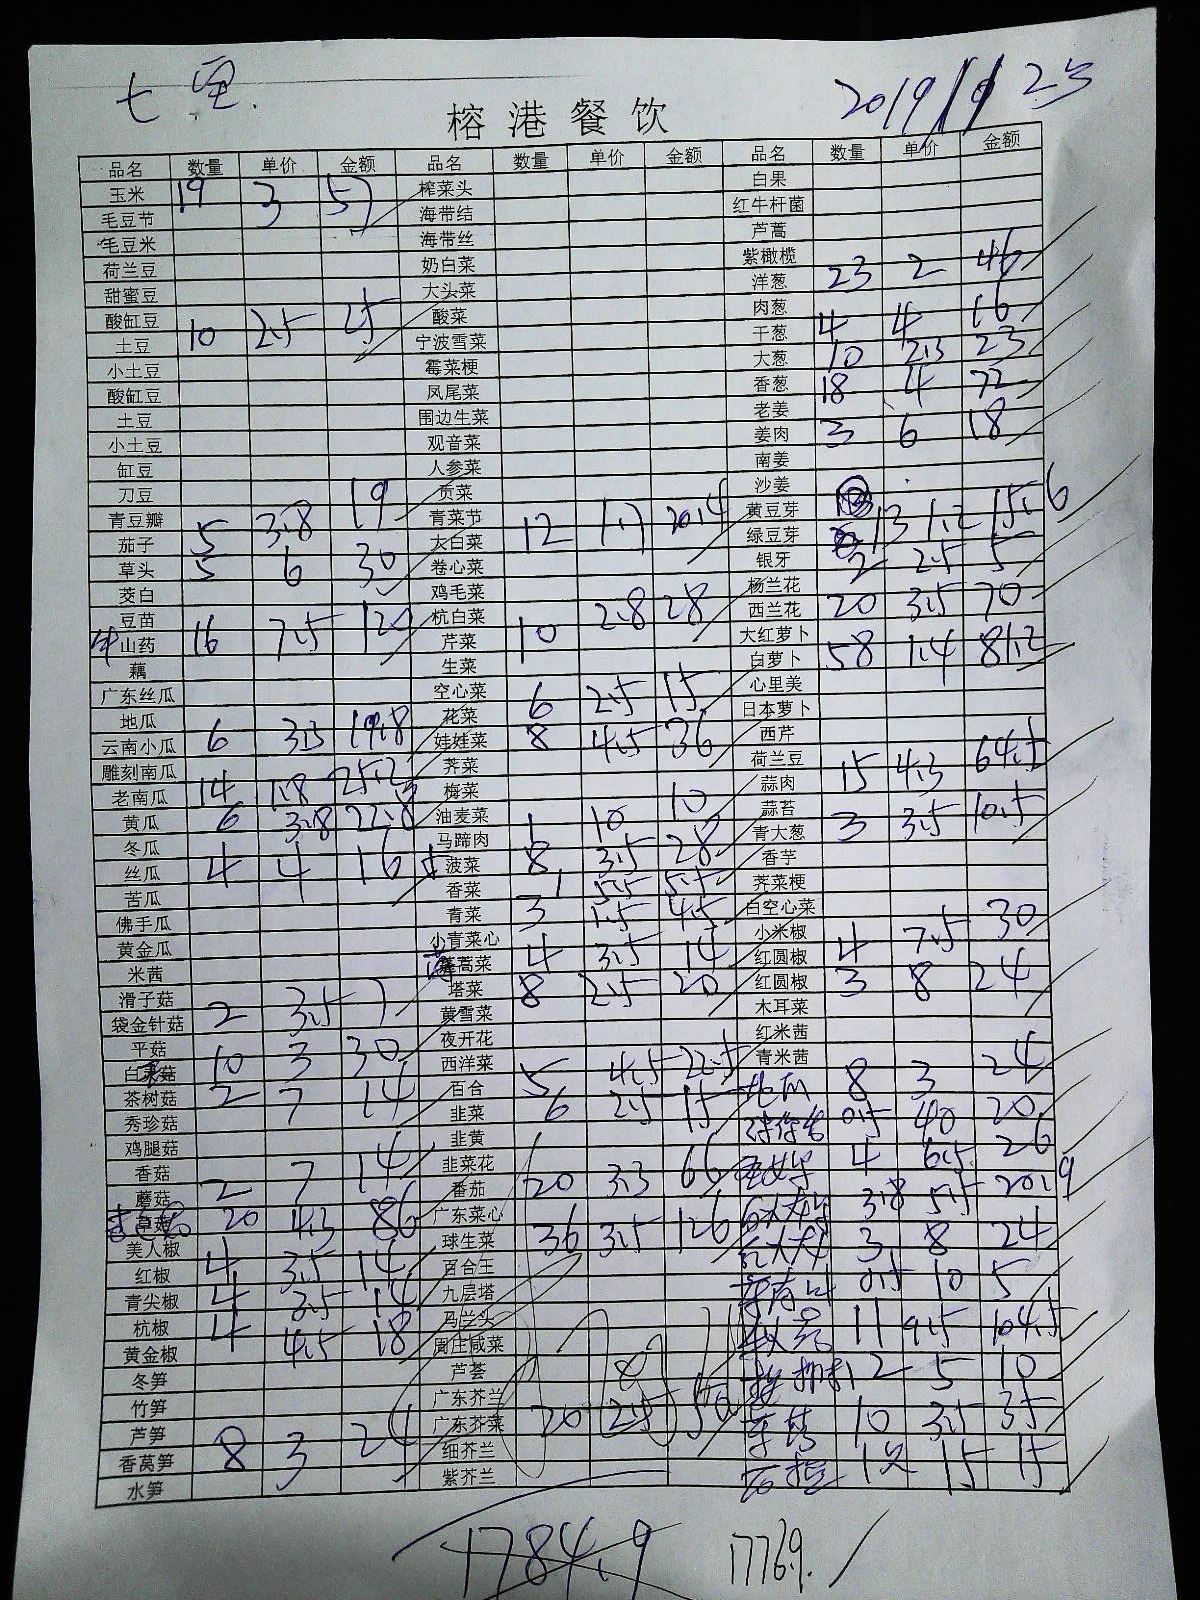 七里
2019/1/23
榕港餐饮
品名 数量 单价 金额
玉米 19 3 57
毛豆节
毛豆米
荷兰豆
甜蜜豆
酸缸豆
土豆 10 2.5 25
小土豆
酸缸豆
土豆
小土豆
缸豆
刀豆
青豆瓣
茄子 5 3.8 19
草头 5 6 30
茭白
豆苗
山药 16 7.5 120
藕
广东丝瓜
地瓜
云南小瓜 6 3.3 19.8
雕刻南瓜
老南瓜 14 1.8 25.2
黄瓜 6 3.8 22.8
冬瓜
丝瓜 4 4 16
苦瓜
佛手瓜
黄金瓜
米茜
滑子菇
袋金针菇 2 3.5 7
平菇
10 3 30
茶树菇 2 7 14
秀珍菇
鸡腿菇
香菇
蘑菇 2 7 14
20 4.3 86
美人椒
红椒 4 3.5 14
青尖椒 4 3.5 14
杭椒 4 4.5 18
黄金椒
冬笋
竹笋
芦笋
香莴笋 8 3 24
水笋
品名 数量 单价 金额
榨菜头
海带结
海带丝
奶白菜
大头菜
酸菜
宁波雪菜
霉菜梗
凤尾菜
围边生菜
观音菜
人参菜
贡菜
青菜节
大白菜 12 1.7 20.4
卷心菜
鸡毛菜
杭白菜
芹菜 10 2.8 28
生菜
空心菜 6 2.5 15
花菜
娃娃菜 8 4.5 36
荠菜
梅菜
油麦菜 1 10 10
马蹄肉
菠菜 8 3.5 28
香菜 1 5.5 5.5
青菜 3 1.5 4.5
小青菜心
蒿菜 4 3.5 14
塔菜 8 2.5 20
黄雪菜
夜开花
西洋菜 5 4.5 22.5
百合
韭菜 6 2.5 15
韭黄
韭菜花
番茄 20 3.3 66
广东菜心
球生菜 36 3.5 126
百合王
九层塔
马兰头
周庄咸菜
芦荟
广东芥兰
广东芥菜 20 2.5 50
细芥兰
紫芥兰
品名 数量 单价 金额
白果
红牛杆菌
芦蒿
紫橄榄
洋葱 23 2 46
肉葱
干葱 4 4 16
大葱 10 2.3 23
香葱 18 4 72
老姜
姜肉 3 6 18
南姜
沙姜
黄豆芽
绿豆芽 13 1.2 15.6
银牙 2 2.5 5
杨兰花
西兰花 20 3.5 70
大红萝卜
白萝卜 58 1.4 81.2
心里美
日本萝卜
西芹
荷兰豆 15 4.3 64.5
蒜肉
蒜苔
青大葱 3 3.5 10.5
香芋
荠菜梗
白空心菜
小米椒 4 7.5 30
红圆椒
红圆椒 3 8 24
木耳菜
红米茜
青米茜
地瓜 8 3 24
0.5 40 20
4 6.5 26
3.8 5.5 20.9
3 8 24
0.5 10 5
11 9.5 104.5
2 5 10
10 3.5 35
1 15 15
1784.9
1776.9